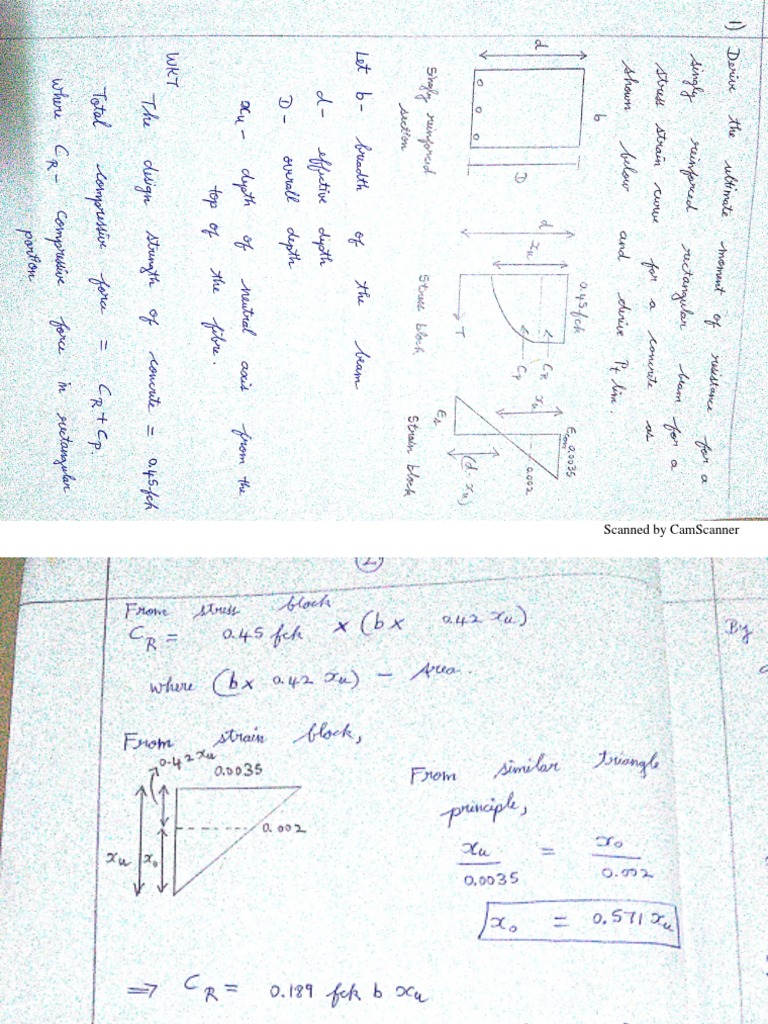 1) Derive the ultimate moment of resistance for a
singly reinforced rectangular beam for a
stress strain curve for a concrete as
shown below and derive Pt lim.
b
d
D
Singly reinforced
section
0.45 fck
d
xu
CR
CP
T
Stress block
0.0035
xu
0.002
(d-xu)
Es
Strain block
Let b - breadth of the beam
d - effective depth
D - overall depth
xu - depth of neutral axis from the
top of the fibre.
WKT
The design strength of concrete = 0.45 fck
Total compressive force = CR + CP.
where CR - Compressive force in rectangular
portion
Scanned by CamScanner
2
From stress block
CR = 0.45 fck x (b x 0.42 xu)
where (b x 0.42 xu) - Area.
From strain block,
0.42 xu
0.0035
0.002
xu
xo
From similar triangle
principle,
xu / 0.0035 = xo / 0.002
xo = 0.571 xu
⇒ CR = 0.189 fck b xu
By